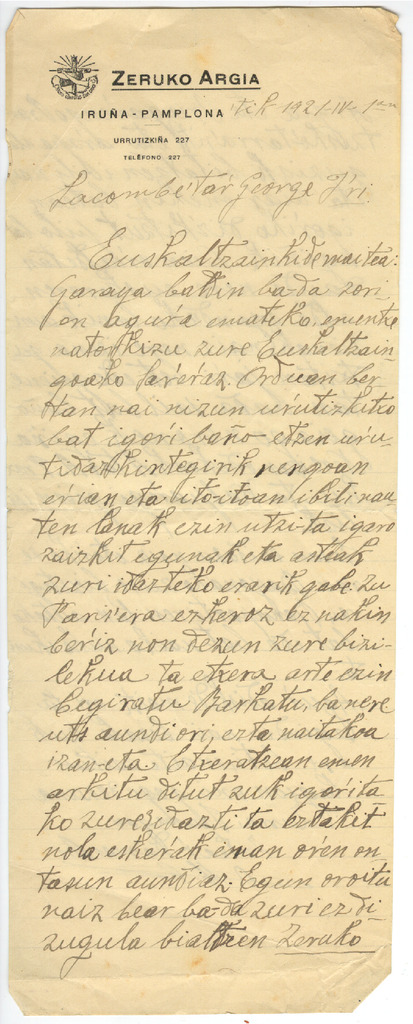 ZERUKO ARGIA
IRUÑA - PAMPLONA 'tik 1921-IV-1
URRUTIZKIÑA 227
TELÉFONO 227
Lacombe'tar George J'ri.
Euskaltzainkide maitea:
Garaya baldin ba-da zori-
on agur'a emateko, ementxe
natorkizu zure Euskaltzain-
goako sar'er'az. Orduan ber-
tan nai nizun ur'utizkitxo
bat igor'i baño etzen ur'u-
tidazkintegirik nengoan
er'ian eta ito-itoan ibili nau-
ten lanak ezin utzi-ta igaro
zaizkit egunak eta asteak
zuri idazteko erarik gabe. Zu
Paris'era ezkeroz ez nakin
ber'iz non dezun zure bizi-
lekua ta etxera arte ezin
begiratu. Barkatu, ba nere
uts aundi ori, ezta naitakoa
izan-eta. Etxeratzean emen
arkitu ditut zuk igor'ita
ko zure idazti ta eztakit
nola esker'ak eman or'en on-
tasun aundiaz. Egun oroitu
naiz bear ba-da zuri ez di-
zugula bialtzen Zeruko